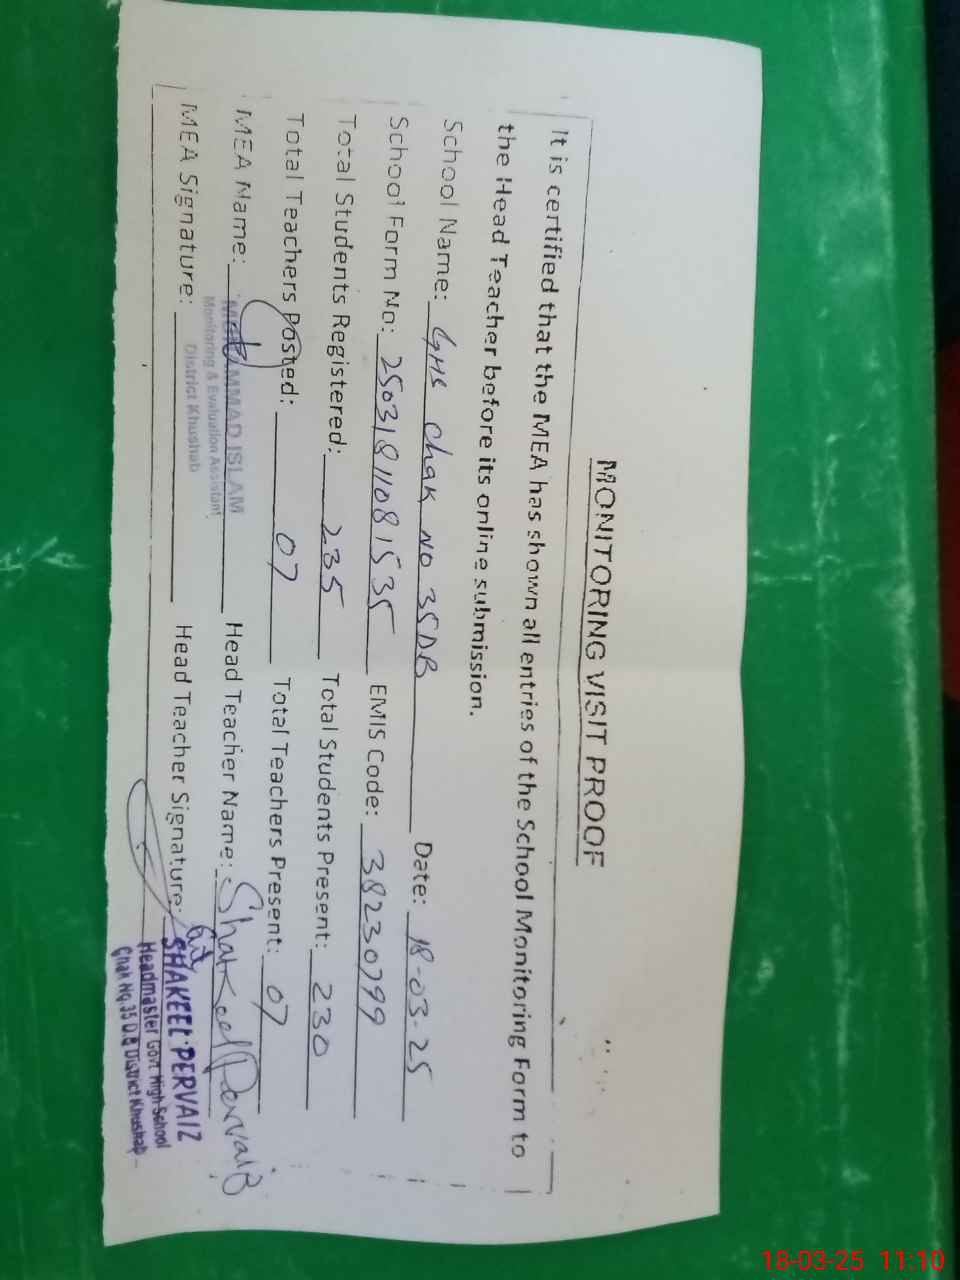 MONITORING VISIT PROOF
It is certified that the MEA has shown all entries of the School Monitoring Form to
the Head Teacher before its online submission.
School Name: GHS Chak NO 35DB Date: 18-03-25
School Form No: 25031811081535 EMIS Code: 38230799
Total Students Registered: 235 Total Students Present: 230
Total Teachers Posted: 07 Total Teachers Present: 07
MEA Name: MUHAMMAD ISLAM Head Teacher Name: Shakeel Pervaiz
Monitoring & Evaluation Assistant
District Khushab
MEA Signature: Head Teacher Signature:
SHAKEEL PERVAIZ
Headmaster Govt. High School
Chak No.35 D.B District Khushab
18-03-25 11:10